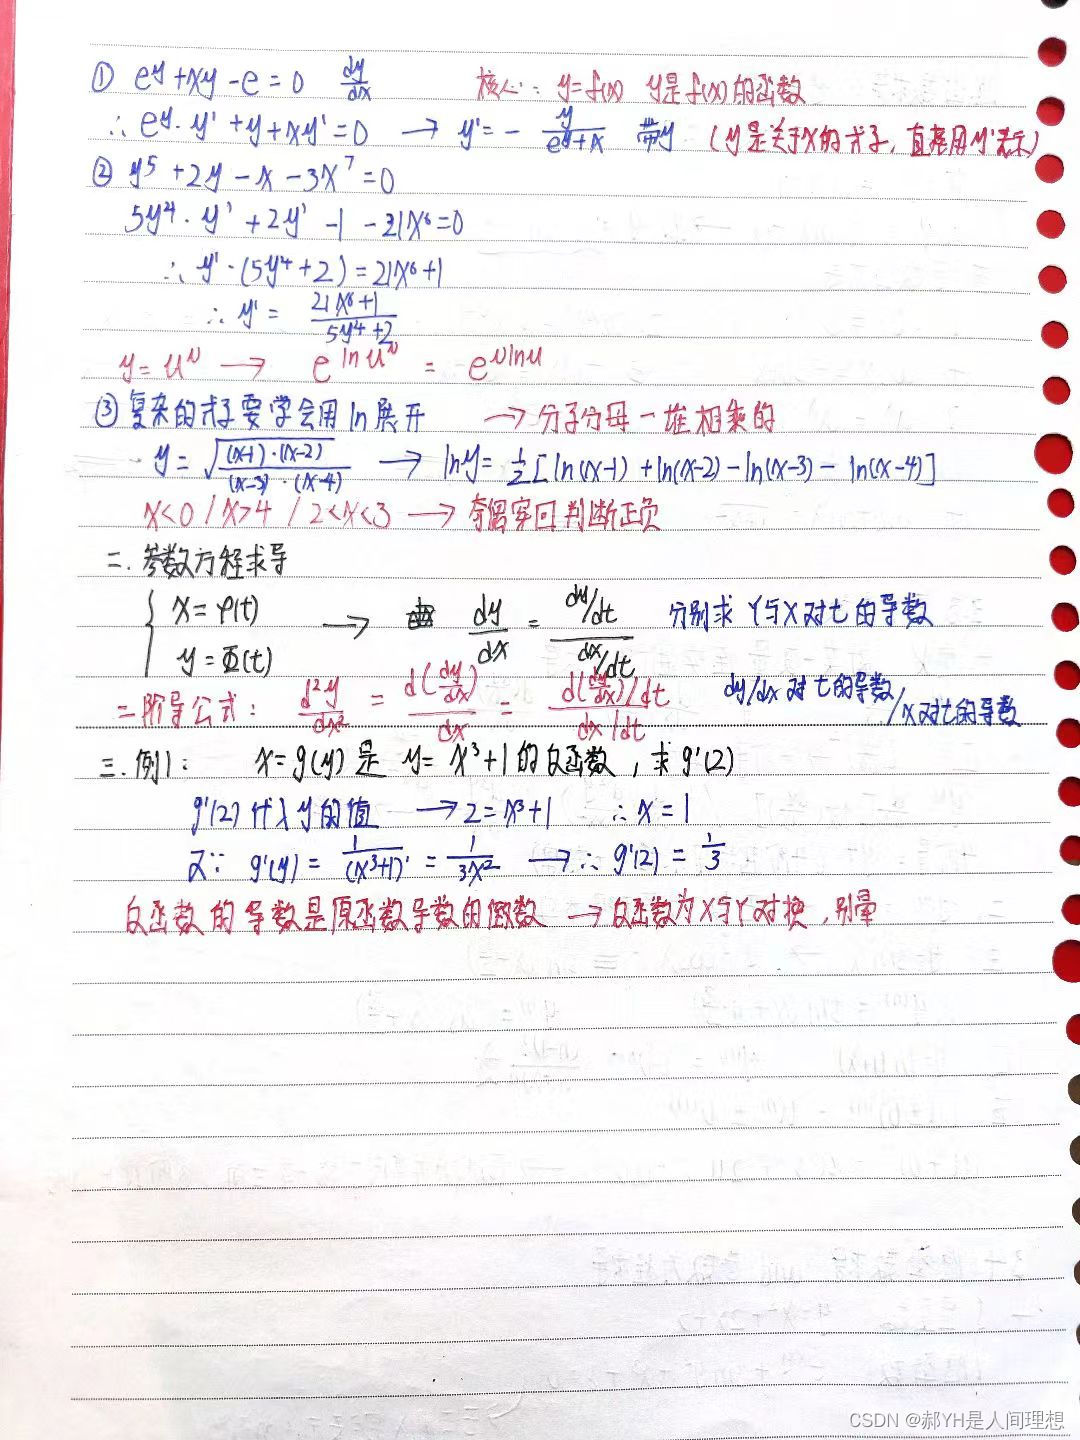 ① e^y + xy - e = 0 dy/dx 核心: y=f(x) y是f(x)的函数
∴ e^y · y' + y + xy' = 0 → y' = - y/(e^y+x) 带y (y是关于x的式子,直接用y'表示)
② y^5 + 2y - x - 3x^7 = 0
5y^4 · y' + 2y' - 1 - 21x^6 = 0
∴ y' · (5y^4 + 2) = 21x^6 + 1
∴ y' = (21x^6+1)/(5y^4+2)
y = u^v → e^{ln u^v} = e^{v ln u}
③ 复杂的式子要学会用ln展开 → 分子分母一堆相乘的
y = √((x-1)·(x-2)/(x-3)·(x-4)) → lny = 1/2[ln(x-1) + ln(x-2) - ln(x-3) - ln(x-4)]
x<0 / x>4 / 2<x<3 → 奇偶穿回判断正负
二. 参数方程求导
{ x = φ(t) → dy/dx = (dy/dt)/(dx/dt) 分别求Y与X对t的导数
y = Φ(t)
二阶导公式: d²y/dx² = d(dy/dx)/dx = (d(dy/dx)/dt)/(dx/dt) dy/dx对t的导数/x对t的导数
三. 例1: x = g(y) 是 y = x³+1 的反函数, 求g'(2)
g'(2) 代入y的值 → 2 = x³+1 ∴ x = 1
又∵ g'(y) = 1/(x³+1)' = 1/3x² → ∴ g'(2) = 1/3
反函数的导数是原函数导数的倒数 → 反函数为X与Y对换,别晕
CSDN @郝YH是人间理想